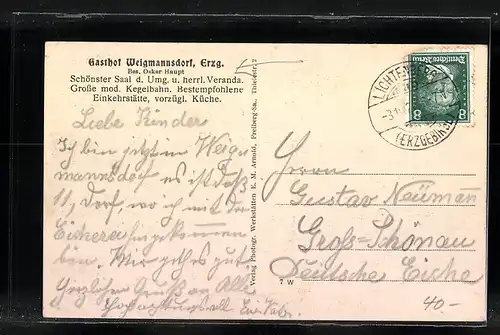 Gasthof Weigmannsdorf, Erzg.
Bes. Oskar Haupt
Schönster Saal d. Umg. u. herrl. Veranda.
Große mod. Kegelbahn. Bestempfohlene
Einkehrstätte, vorzügl. Küche.
Liebe Kinder
Ich bin jetzt in Weig
mannsdorf es ist das
11, Dorf, wo ich mit der
ben. Mir geht es gut
Herzlichen Gruß an Alle
Verlag Photogr. Werkstätten E. M. Arnold, Freiberg-Sa.
Deutsches Reich
8 8
LICHTENBERG
(ERZGEBIRGE)
Herrn
Gustav Neumann
Groß-Schönau
Deutsche Eiche
7 W
40-